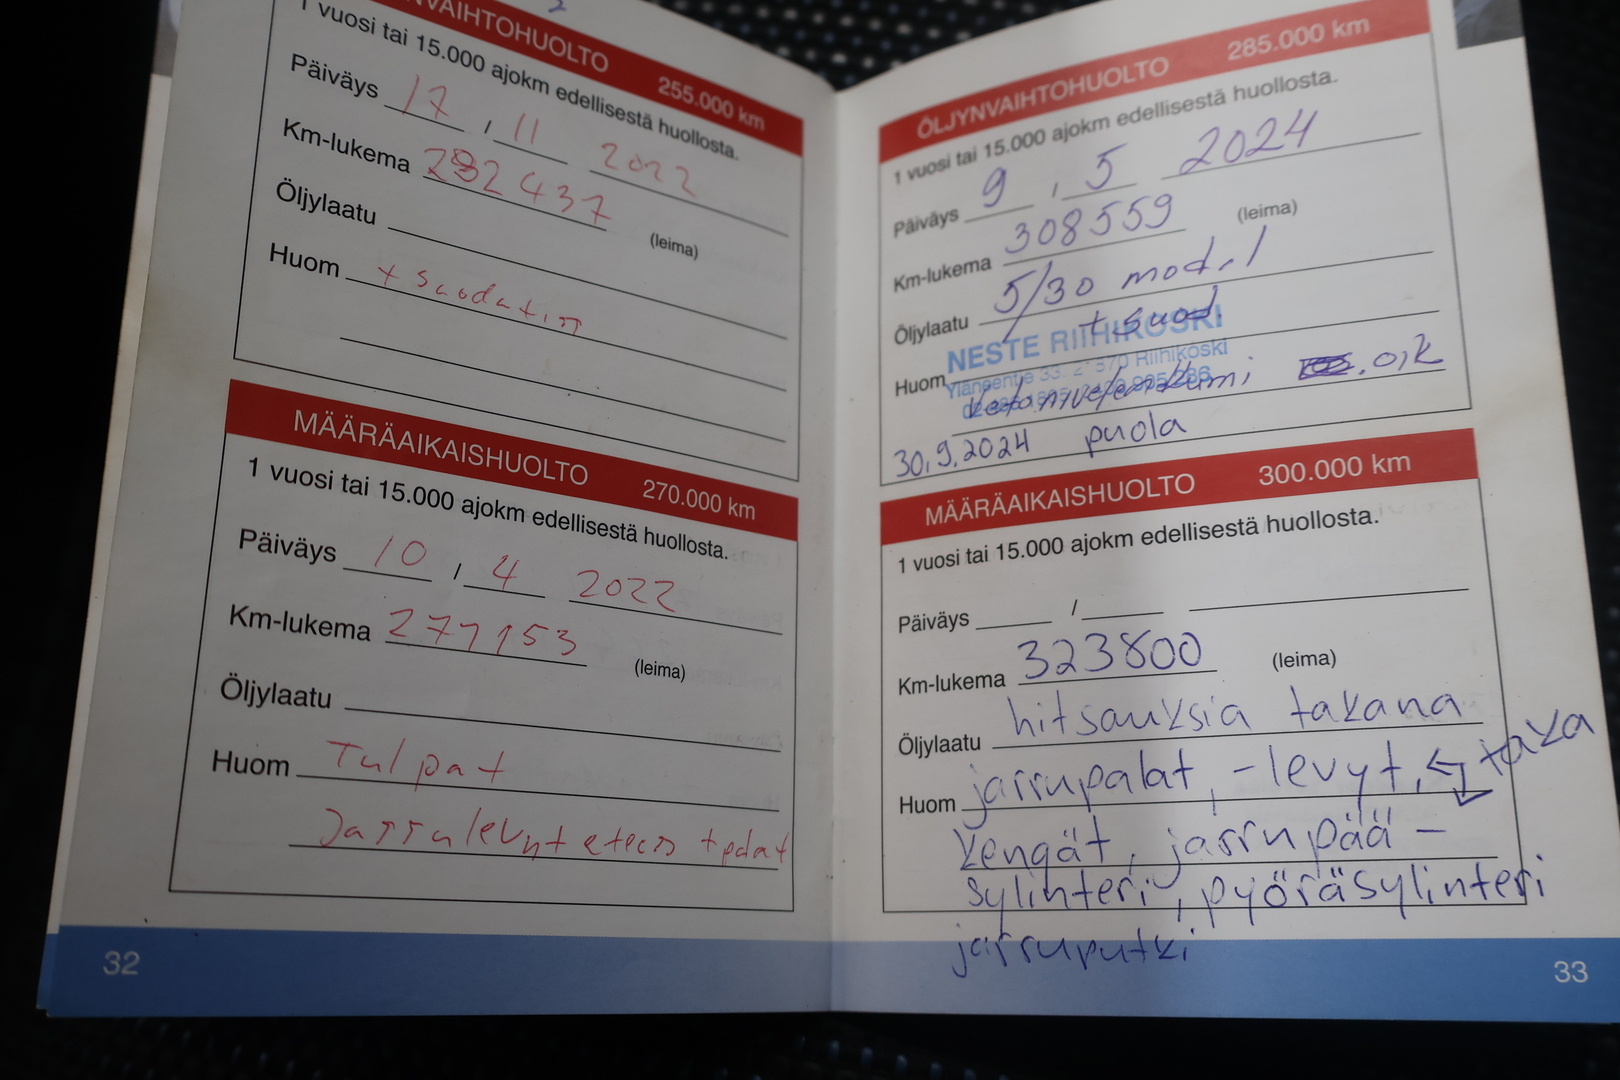 NVAIHTOHUOLTO 255.000 km
1 vuosi tai 15.000 ajokm edellisestä huollosta.
Päiväys 17 / 11 2022
Km-lukema 292437
(leima)
Öljylaatu
Huom + suodatin
MÄÄRÄAIKAISHUOLTO 270.000 km
1 vuosi tai 15.000 ajokm edellisestä huollosta.
Päiväys 10 / 4 2022
Km-lukema 277153
(leima)
Öljylaatu
Huom Tulpat
Jarrulevyt eteen + palat
32
ÖLJYNVAIHTOHUOLTO 285.000 km
1 vuosi tai 15.000 ajokm edellisestä huollosta.
Päiväys 9 / 5 2024
Km-lukema 308559 (leima)
Öljylaatu 5/30
+ suod.
NESTE RIIHIKOSKI
Yläneentie 33, 21870 Riihikoski
Huom vetonivelenkumi o,k
30,9,2024 puola
MÄÄRÄAIKAISHUOLTO 300.000 km
1 vuosi tai 15.000 ajokm edellisestä huollosta.
Päiväys /
Km-lukema 323800 (leima)
Öljylaatu hitsauksia takana
Huom jarrupalat, -levyt, ← taka
kengät, jarrupää-
sylinteri, pyöräsylinteri
jarruputki
33